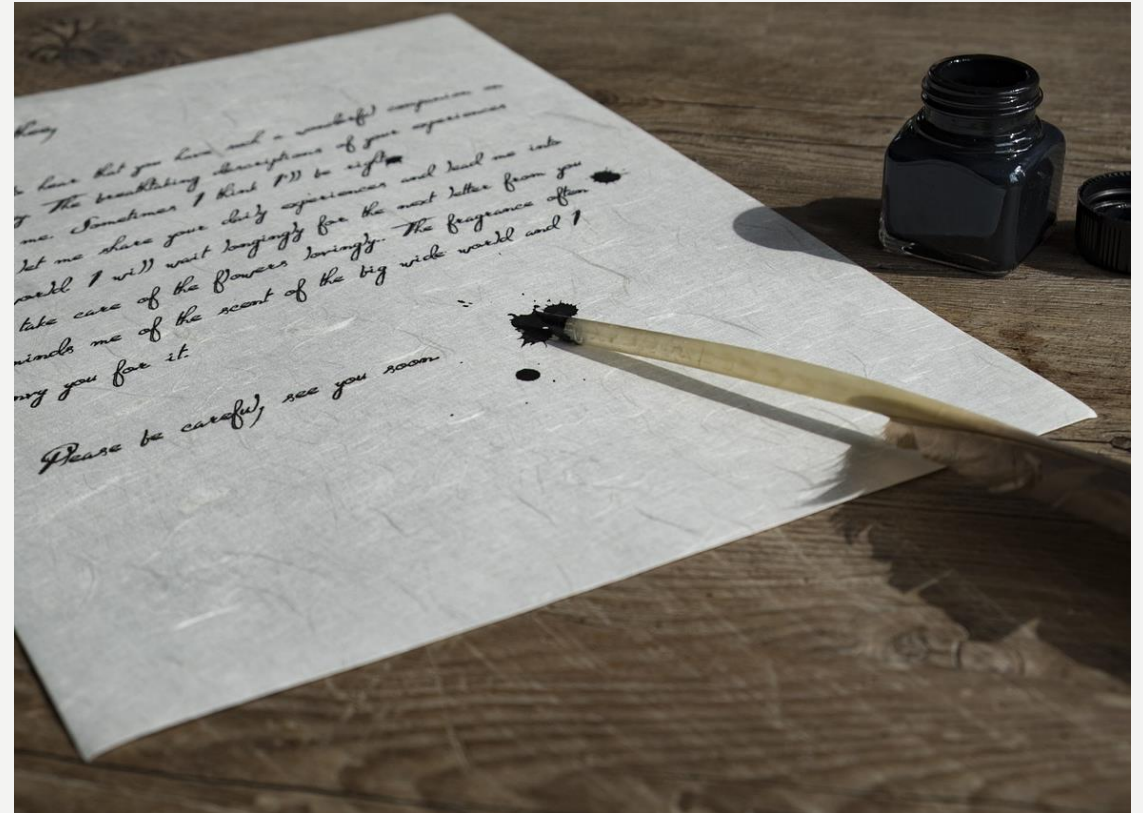 hear that you have such a wonderful companion on
The breathtaking descriptions of your experiences
me. Sometimes I think I'll be right
let me share your daily experiences and lead me into
world I will wait longingly for the next letter from you
take care of the flowers lovingly. The fragrance often
minds me of the scent of the big wide world and I
you for it.
Please be careful, see you soon